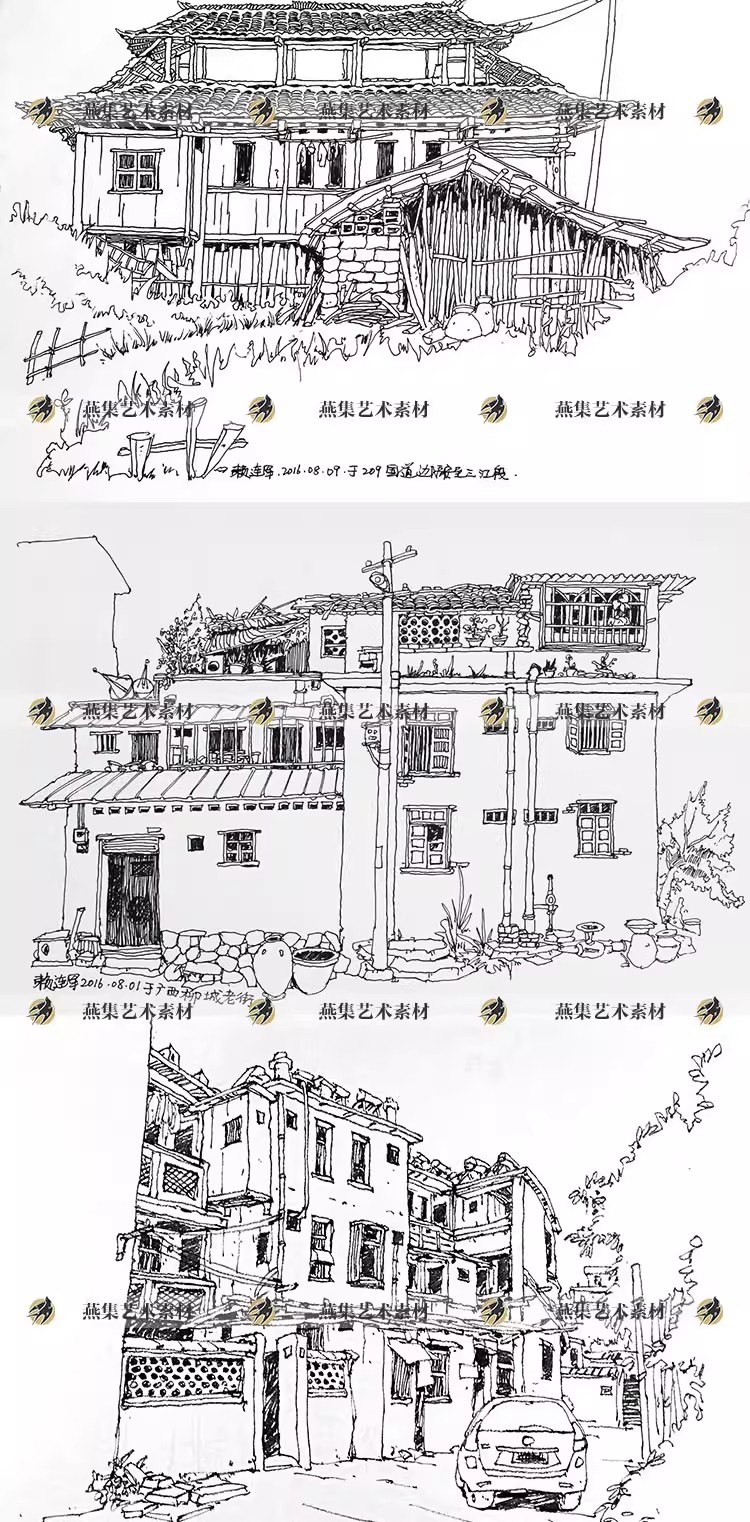 燕集艺术素材 燕集艺术素材 燕集艺术素材
燕集艺术素材 燕集艺术素材 燕集艺术素材
赖连军.2016.08.09.于209国道边 至三江段.
燕集艺术素材 燕集艺术素材 燕集艺术素材
赖连军2016.08.01于广西柳城老街
燕集艺术素材 燕集艺术素材 燕集艺术素材
燕集艺术素材 燕集艺术素材 燕集艺术素材